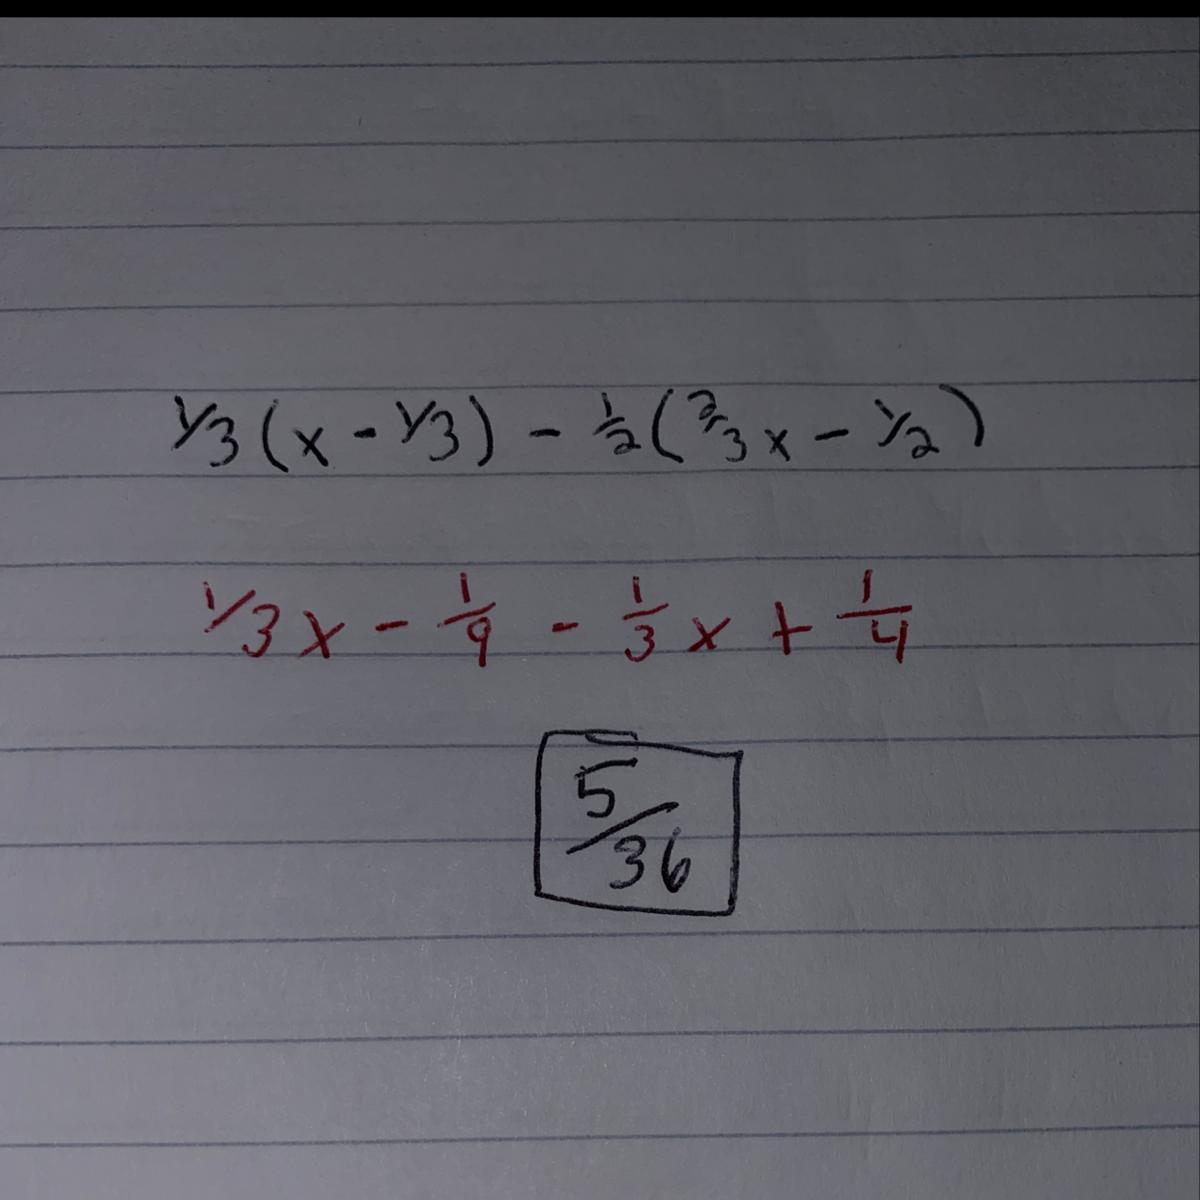 1/3(x - 1/3) - 1/2(2/3x - 1/2)
1/3x - 1/9 - 1/3x + 1/4
5/36